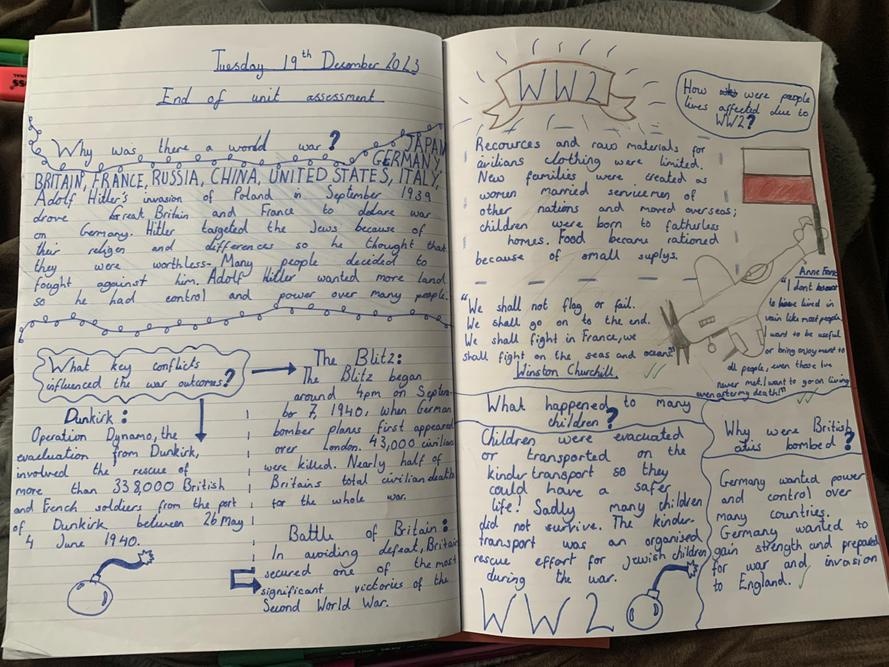 Tuesday 19th December 2023
End of unit assessment
Why was there a world war?
JAPAN
GERMANY
BRITAIN, FRANCE, RUSSIA, CHINA, UNITED STATES, ITALY,
Adolf Hitler's invasion of Poland in September 1939
drove Great Britain and France to declare war
on Germany. Hitler targeted the Jews because of
their religen and differences so he thought that
they were worthless. Many people decided to
fought against him. Adolf Hitler wanted more land
so he had control and power over many people.
What key conflicts
influenced the war outcomes?
Dunkirk:
Operation Dynamo, the
evacuation from Dunkirk,
involved the rescue of
more than 338,000 British
and French soldiers from the port
of Dunkirk between 26 May
4 June 1940.
The Blitz:
The Blitz began
around 4pm on Septem-
ber 7, 1940, when German
bomber planes first appeared
over London. 43,000 civilians
were killed. Nearly half of
Britains total civilian deaths
for the whole war.
Battle of Britain:
In avoiding defeat, Britain
secured one of the most
significant victories of the
Second World War.
WW2
How were people
lives affected due to
WW2?
Recources and raw materials for
civilians clothing were limited.
New families were created as
women married servicemen of
other nations and moved overseas;
children were born to fatherless
homes. Food became rationed
because of small suplys.
"We shall not flag or fail.
We shall go on to the end.
We shall fight in France, we
shall fight on the seas and oceans"
Winston Churchill
Anne Frank
"I dont
to have lived in
vain like most people
I want to be useful
or bring enjoyment to
all people, even those Ive
never met. I want to go on living
even after my death!"
What happened to many
children?
Children were evacuated
or transported on the
kindertransport so they
could have a safer
life! Sadly many children
did not survive. The kinder-
transport was an organised
rescue effort for Jewish children
during the war.
WW2
Why were British
bombed?
Germany wanted power
and control over
many countries.
Germany wanted to
gain strength and prepared
for war and invasion
to England.